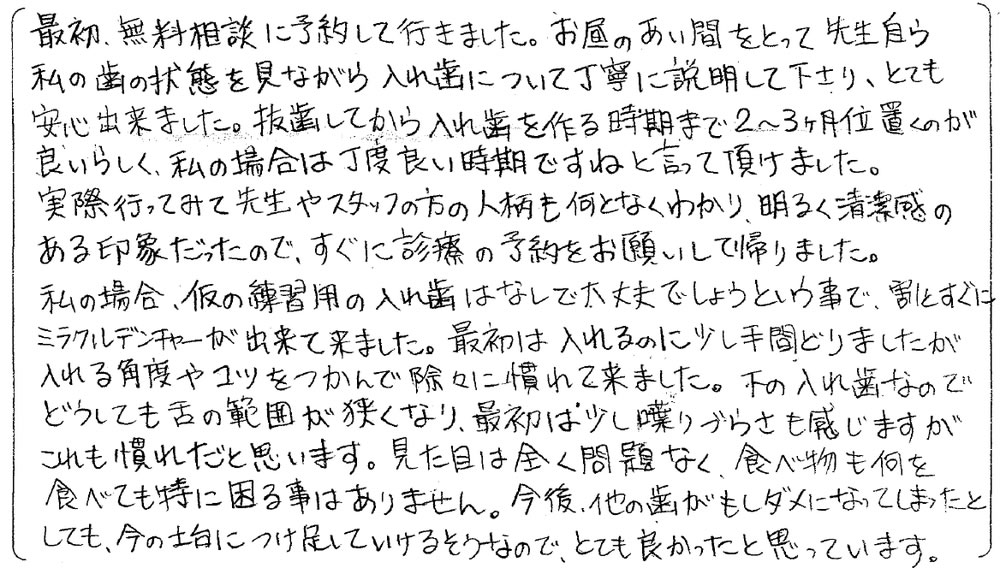 最初、無料相談に予約して行きました。お昼のあい間をとって先生自ら
私の歯の状態を見ながら入れ歯について丁寧に説明して下さり、とても
安心出来ました。抜歯してから入れ歯を作る時期まで2〜3ヶ月位置くのが
良いらしく、私の場合は丁度良い時期ですねと言って頂けました。
実際行ってみて先生やスタッフの方の人柄も何となくわかり、明るく清潔感の
ある印象だったので、すぐに診療の予約をお願いして帰りました。
私の場合、仮の練習用の入れ歯はなしで大丈夫でしょうという事で、割とすぐに
ミラクルデンチャーが出来て来ました。最初は入れるのに少し手間どりましたが
入れる角度やコツをつかんで除々に慣れて来ました。下の入れ歯なので
どうしても舌の範囲が狭くなり、最初は少し喋りづらさも感じますが
これも慣れだと思います。見た目は全く問題なく、食べ物も何を
食べても特に困る事はありません。今後、他の歯がもしダメになってしまったと
しても、今の土台につけ足していけるそうなので、とても良かったと思っています。